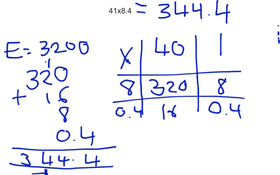 41x8.4 = 344.4
E= 3200
1
320
+ 16
8
0.4
344.4
X 40 1
8 320 8
0.4 16 0.4